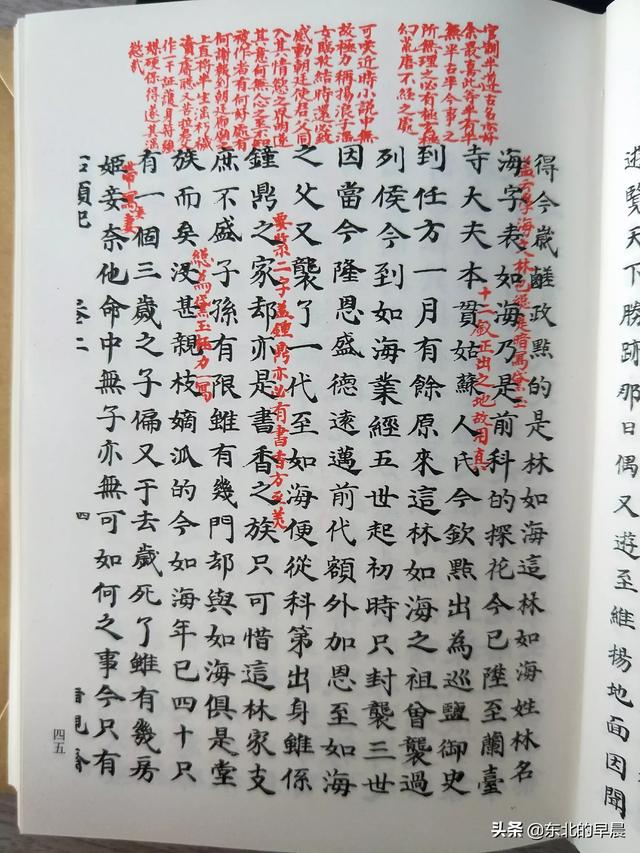 遊覽天下勝跡那日偶又遊至維揚地面因聞
官制半遵古名亦好
余最喜此等半有半
無半古半今事之
所無理之必有極玄極
幻荒唐不經之處
可笑近時小說中無
故極力稱揚浪子淫
女臨收結時還必致
感動朝廷使君父同
入其情慾之界明遂
其意何無人心之至不知
被作者有何好處有
何謝報到朝廷廊廟之
上直將半生淫朽穢
瀆睿聰又苦拉君父
作一干證護身符強
媒硬保得遂其淫
慾哉
得今歲鹺政點的是林如海這林如海姓林名
蓋云學海文林也總是暗寫黛玉
海字表如海乃是前科的探花今已陞至蘭臺
寺大夫本貫姑蘇人氏今欽點出為巡鹽御史
十二釵正出之地故用真
到任方一月有餘原來這林如海之祖曾襲過
列侯今到如海業經五世起初時只封襲三世
因當今隆恩盛德遠邁前代額外加恩至如海
之父又襲了一代至如海便從科第出身雖係
要緊二字盖鍾鼎亦必有書香方至美
鐘鼎之家却亦是書香之族只可惜這林家支
庶不盛子孫有限雖有幾門却與如海俱是堂
總為黛玉極力一寫
族而矣沒甚親枝嫡派的今如海年已四十只
有一個三歲之子偏又于去歲死了雖有幾房
帶寫賢妻
姬妾奈他命中無子亦無可如何之事今只有
卷二
四
四五
头条 @东北的早晨